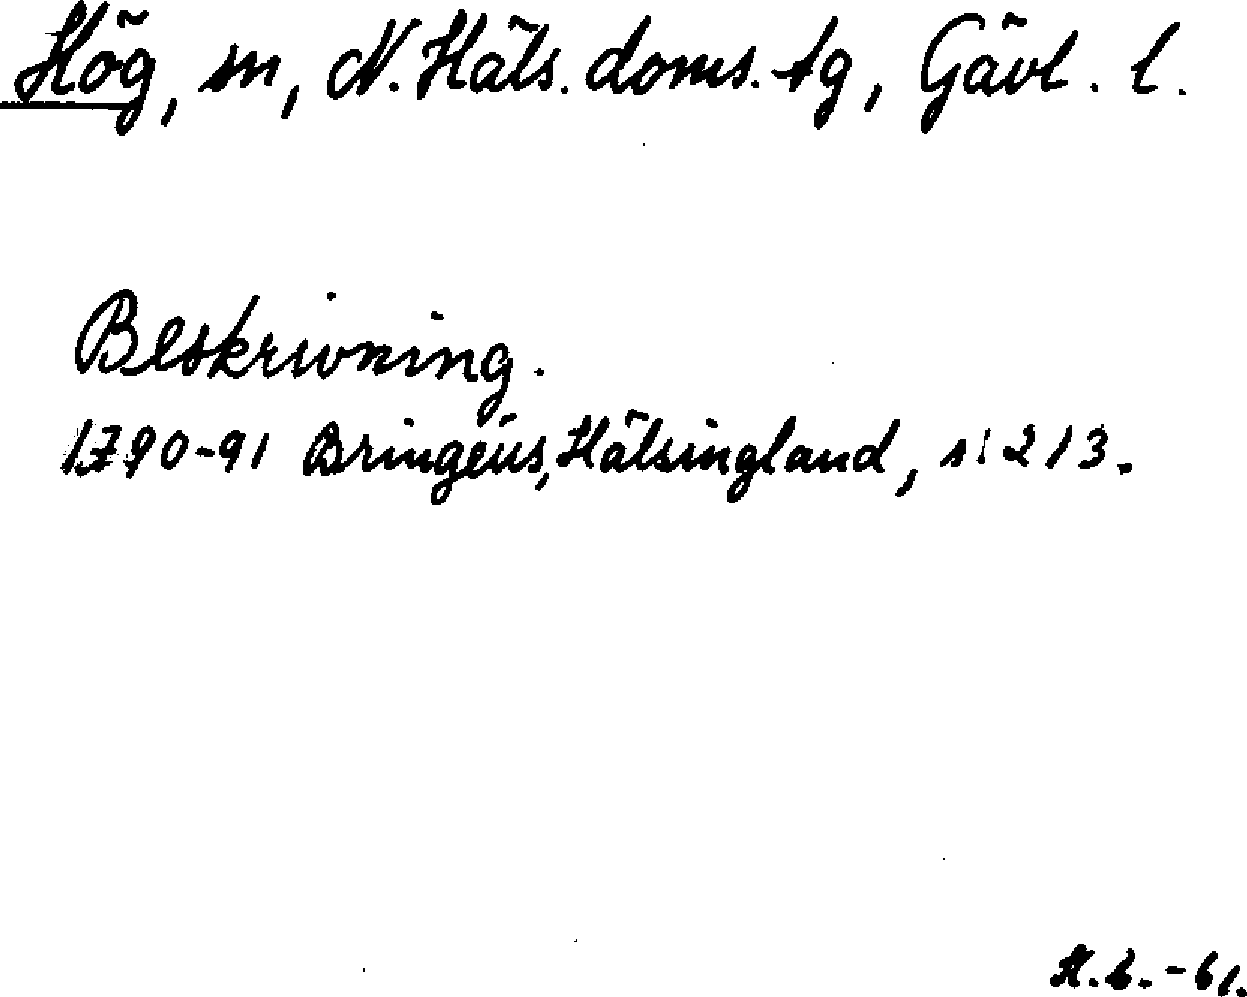 Hög, sn, N. Häls. doms. tg, Gävl. l.
Beskrivning.
1790-91 Bringéus, Hälsingland, s. 213.
H.L.-61.